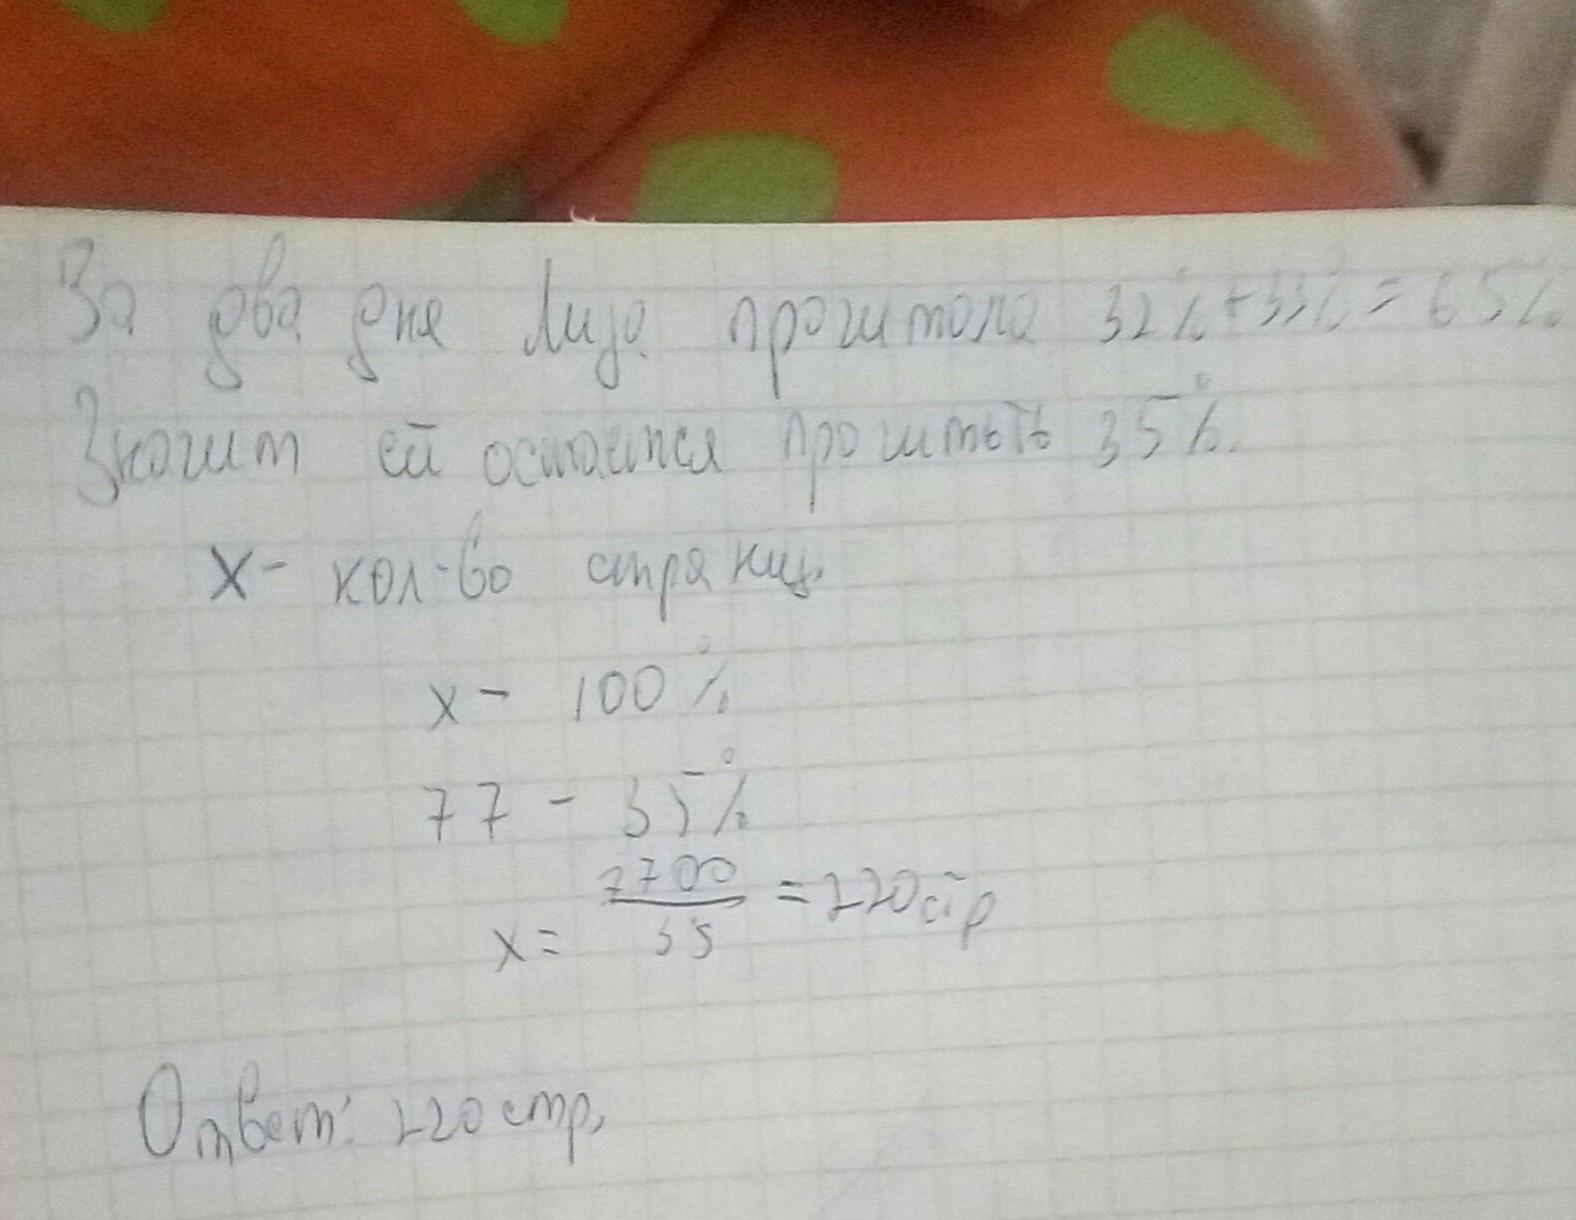 За два дня Лиза прочитала 32%+33%=65%
Значит ей остается прочитать 35%.
x- кол-во страниц.
x- 100%
77 - 35%
x= 7700/35 =220стр
Ответ: 220стр.